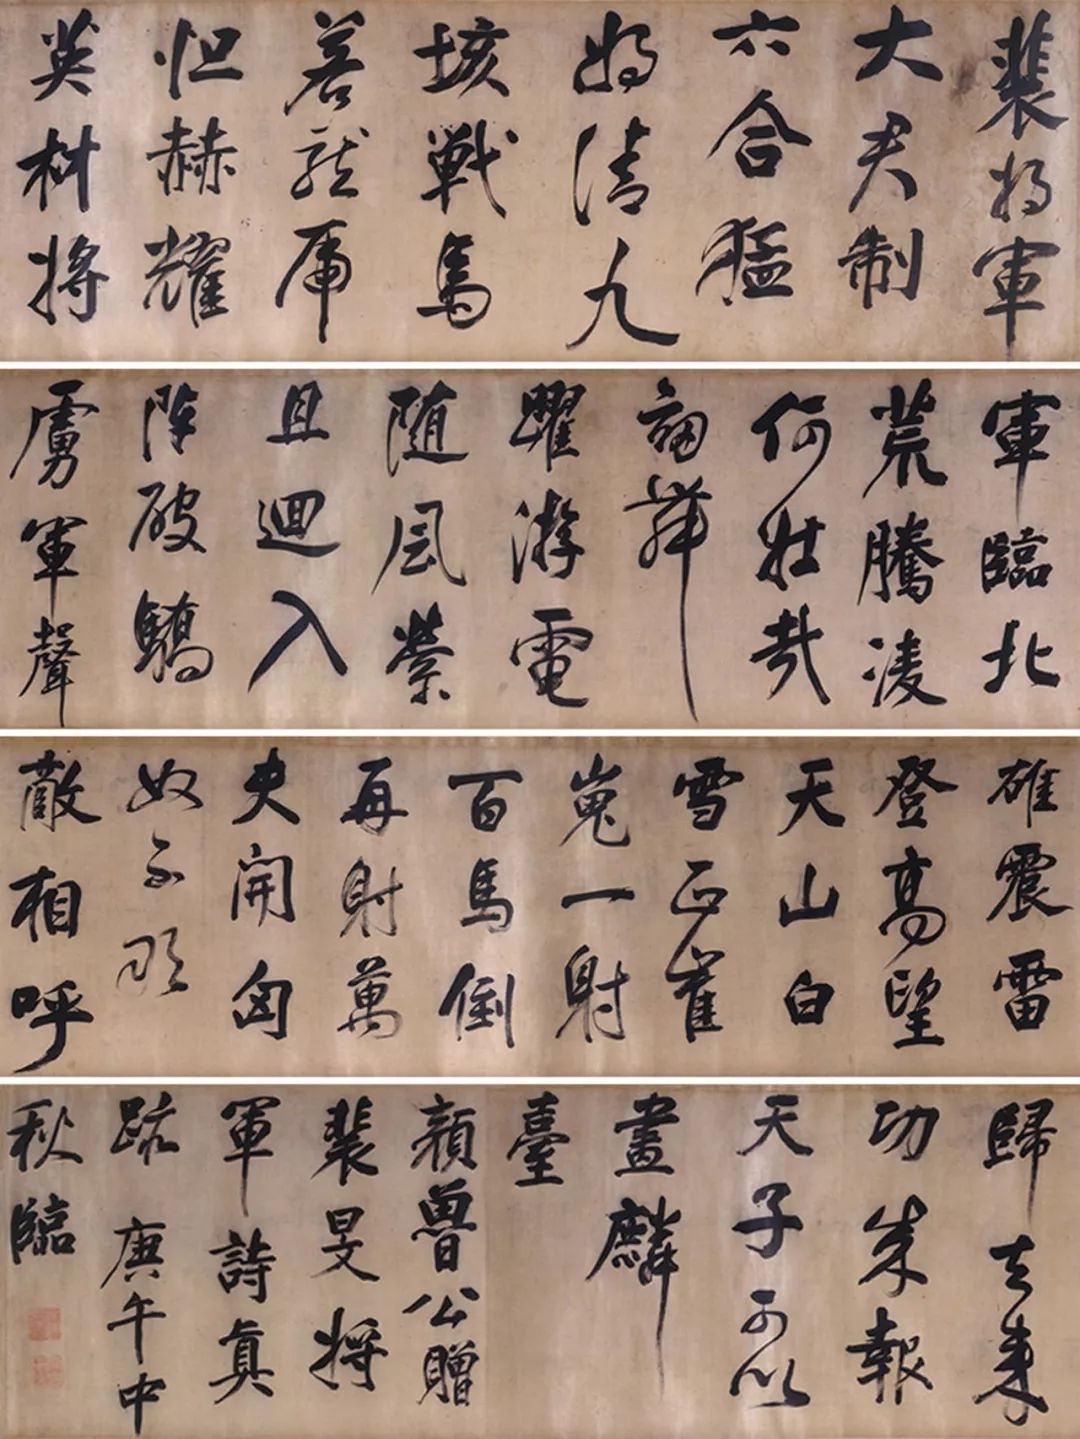 裴将軍
大君制
六合猛
将清九
垓戦馬
若龍虎
怛赫耀
英材將
軍臨北
荒騰凌
何壮哉
劒舞
躍游電
随風縈
且迴入
陣破驕
虜軍聲
雄震雷
登高望
天山白
雪正崔
嵬一射
百馬倒
再射萬
夫開匈
奴不敢
敵相呼
歸去来
功成報
天子可以
畫麟
臺
顔魯公贈
裴旻将
軍詩真
跡 庚午中
秋臨